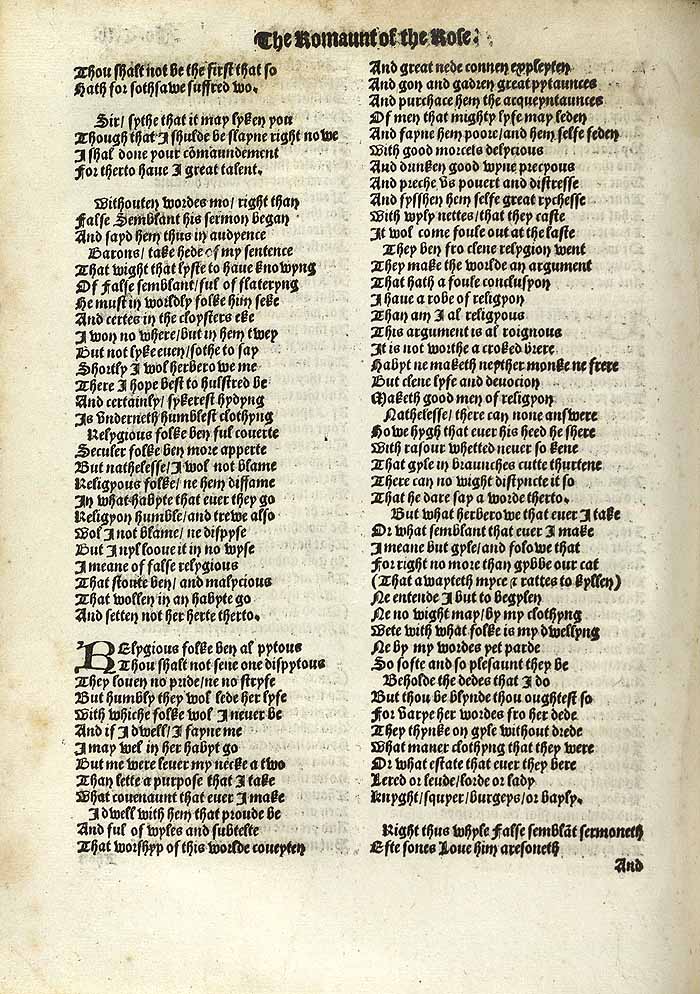 The Romaunt of the Rose.
Thou shalt not be the first that so
Hath for sothsawe suffred wo.
Sir/ sythe that it may lyken you
Though that I shulde be slayne right nowe
I shal done your cōmaundement
For therto haue I great talent.
Withouten wordes mo/ right than
False Semblant his sermon began
And sayd hem thus in audyence
Barons/ take hede of my sentence
That wight that lyste to haue knowyng
Of False semblant/ful of flateryng
He must in worldly folke him seke
And certes in the cloysters eke
I won no where/but in hem twey
But not lyke euen/sothe to say
Shortly I wol herborowe me
There I hope best to hulstred be
And certainly/ sykerest hydyng
Is vnderneth humblest clothyng
Relygious folke ben ful couerte
Seculer folke ben more apperte
But nathelesse/I wol not blame
Religyous folke/ ne hem diffame
In what habyte that euer they go
Religyon humble/and trewe also
Wol I not blame/ ne dispyse
But I nyl looue it in no wyse
I meane of false relygious
That stoute ben/ and malycious
That wollen in an habyte go
And setten not her herte therto.
RElygious folke ben al pytous
Thou shalt not sene one dispytous
They louen no pride/ne no stryfe
But humbly they wol lede her lyfe
With whiche folke wol I neuer be
And if I dwell/I fayne me
I may wel in her habyt go
But me were leuer my necke a two
Than lette a purpose that I take
What couenaunt that euer I make
I dwell with hem that proude be
And ful of wyles and subtelte
That worshyp of this worlde coueyten
And great nede connen expleyten
And gon and gadren great pytaunces
And purchace hem the acqueyntaunces
Of men that mighty lyfe may leden
And fayne hem poore/and hem selfe feden
With good morcels delycious
And dunken good wyne precyous
And preche vs pouert and distresse
And fysshen hem selfe great rychesse
With wyly nettes/that they caste
It wol come foule out at the laste
They ben fro clene relygion went
They make the worlde an argument
That hath a foule conclusyon
I haue a robe of religyon
Than am I al religyous
This argument is al roignous
It is not worthe a croked brere
Habyt ne maketh neyther monke ne frere
But clene lyfe and deuocion
Maketh good men of religyon
Nathelesse/ there can none answere
Howe hygh that euer his heed he shere
With rasour whetted neuer so kene
That gyle in braunches cutte thurtene
There can no wight distyncte it so
That he dare say a worde therto.
But what herberowe that euer I take
Or what semblant that euer I make
I meane but gyle/and folowe that
For right no more than gybbe our cat
(That awayteth myce & rattes to kyllen)
Ne entende I but to begylen
Ne no wight may/by my clothyng
Wete with what folke is my dwellyng
Ne by my wordes yet parde
So softe and so plesaunt they be
Beholde the dedes that I do
But thou be blynde thou oughtest so
For varye her wordes fro her dede
They thynke on gyle without drede
What maner clothyng that they were
Or what estate that euer they bere
Lered or leude/lorde or lady
Knyght/squyer/burgeys/or bayly.
Right thus whyle False semblāt sermoneth
Efte sones Loue him aresoneth
And